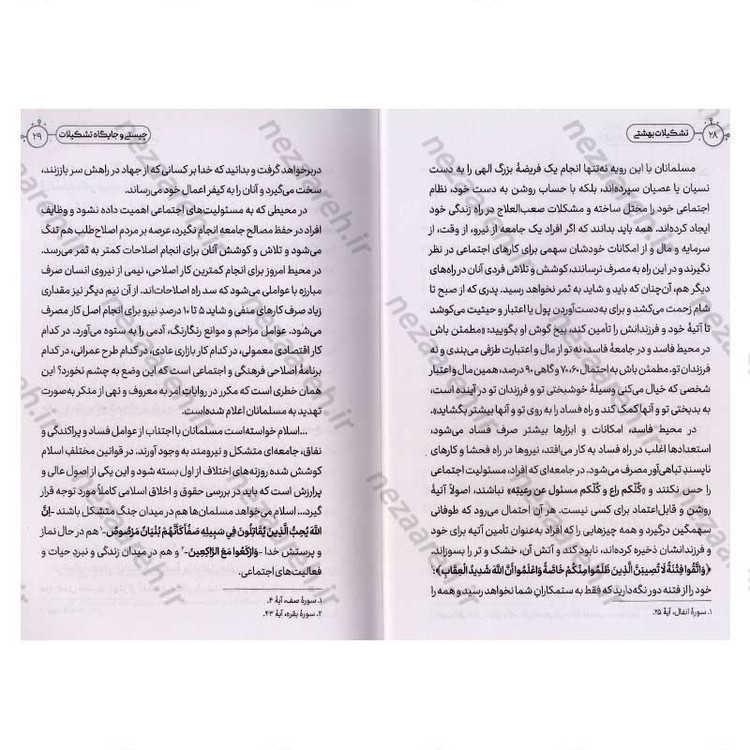 ۲۸
تشکیلات بهشتی
مسلمانان با این رویه نه‌تنها انجام یک فریضهٔ بزرگ الهی را به دست
نسیان یا عصیان سپرده‌اند، بلکه با حساب روشن به دست خود، نظام
اجتماعی خود را مختل ساخته و مشکلات صعب‌العلاج در راه زندگی خود
ایجاد کرده‌اند. همه باید بدانند که اگر افراد یک جامعه از نیرو، از وقت، از
سرمایه و مال و از امکانات خودشان سهمی برای کارهای اجتماعی در نظر
نگیرند و در این راه به مصرف نرسانند، کوشش و تلاش فردی آنان در راه‌های
دیگر هم، آن‌چنان که باید و شاید به ثمر نخواهد رسید. پدری که از صبح تا
شام زحمت می‌کشد و برای به‌دست‌آوردن پول یا اعتبار و حیثیت می‌کوشد
تا آتیهٔ خود و فرزندانش را تأمین کند، بیخ گوش او بگویید: «مطمئن باش
در محیط فاسد و در جامعهٔ فاسد، نه تو از مال و اعتبارت طرْفی می‌بندی و نه
فرزندان تو. مطمئن باش به احتمال ۶۰، ۷۰ و گاهی ۹۰ درصد، همین مال و اعتبار
شخصی که خیال می‌کنی وسیلهٔ خوشبختی تو و فرزندان تو در آینده است،
به بدبختی تو و آنها کمک کند و راه فساد را به روی تو و آنها بیشتر بگشاید.
در محیط فاسد، امکانات و ابزارها بیشتر صرف فساد می‌شود،
استعدادها اغلب در راه فساد به کار می‌افتد، نیروها در راه فحشا و کارهای
ناپسندِ تباهی‌آور مصرف می‌شود. در جامعه‌ای که افراد، مسئولیت اجتماعی
را حس نکنند و «کُلّکم راعٍ و کُلّکم مسئول عن رعیّته» نباشند، اصولاً آتیهٔ
روشن و قابل‌اعتماد برای کسی نیست. هر آن احتمال می‌رود که طوفانی
سهمگین درگیرد و همه چیزهایی را که افراد به‌عنوان تأمین آتیه برای خود
و فرزندانشان ذخیره کرده‌اند، نابود کند و آتش آن، خشک و تر را بسوزاند.
﴿وَاتَّقُوا فِتْنَةً لَا تُصِیبَنَّ الَّذِینَ ظَلَمُوا مِنْکُمْ خَاصَّةً وَاعْلَمُوا أَنَّ اللَّهَ شَدِیدُ الْعِقَابِ﴾؛۱
خود را از فتنه دور نگه دارید که فقط به ستمکارانِ شما نخواهد رسید و همه را
۱. سورهٔ انفال، آیهٔ ۲۵.
چیستی و جایگاه تشکیلات
۲۹
دربرخواهد گرفت و بدانید که خدا بر کسانی که از جهاد در راهش سر باززنند،
سخت می‌گیرد و آنان را به کیفر اعمال خود می‌رساند.
در محیطی که به مسئولیت‌های اجتماعی اهمیت داده نشود و وظایف
افراد در حفظ مصالح جامعه انجام نگیرد، عرصه بر مردم اصلاح‌طلب هم تنگ
می‌شود و تلاش و کوشش آنان برای انجام اصلاحات کمتر به ثمر می‌رسد.
در محیط امروز برای انجام کمترین کار اصلاحی، نیمی از نیروی انسان صرف
مبارزه با عواملی می‌شود که سد راه اصلاحات‌اند. از آن نیم دیگر نیز مقداری
زیاد صرف کارهای منفی و شاید ۵ تا ۱۰ درصدِ نیرو برای انجام اصل کار مصرف
می‌شود. عوامل مزاحم و موانع رنگارنگ، آدمی را به ستوه می‌آورد. در کدام
کار اقتصادی معمولی، در کدام کار بازاری عادی، در کدام طرح عمرانی، در کدام
برنامهٔ اصلاحی فرهنگی و اجتماعی است که این وضع به چشم نخورد؟ این
همان خطری است که مکرر در روایاتِ امر به معروف و نهی از منکر به‌صورت
تهدید به مسلمانان اعلام شده‌است.
...اسلام خواسته‌است مسلمانان با اجتناب از عوامل فساد و پراکندگی و
نفاق، جامعه‌ای متشکل و نیرومند به وجود آورند. در قوانین مختلف اسلام
کوشش شده روزنه‌های اختلاف از اول بسته شود و این یکی از اصول عالی و
پرارزش است که باید در بررسی حقوق و اخلاق اسلامی کاملاً مورد توجه قرار
گیرد... اسلام می‌خواهد مسلمان‌ها هم در میدان جنگ متشکل باشند -إِنَّ
اللَّهَ یُحِبُّ الَّذِینَ یُقَاتِلُونَ فِی سَبِیلِهِ صَفًّا کَأَنَّهُمْ بُنْیَانٌ مَرْصُوصٌ-۱ هم در حال نماز
و پرستش خدا -وَارْکَعُوا مَعَ الرَّاکِعِینَ-۲ و هم در میدان زندگی و نبردِ حیات و
فعالیت‌های اجتماعی.
۱. سورهٔ صف، آیهٔ ۴.
۲. سورهٔ بقره، آیهٔ ۴۳.
nezaareh.ir